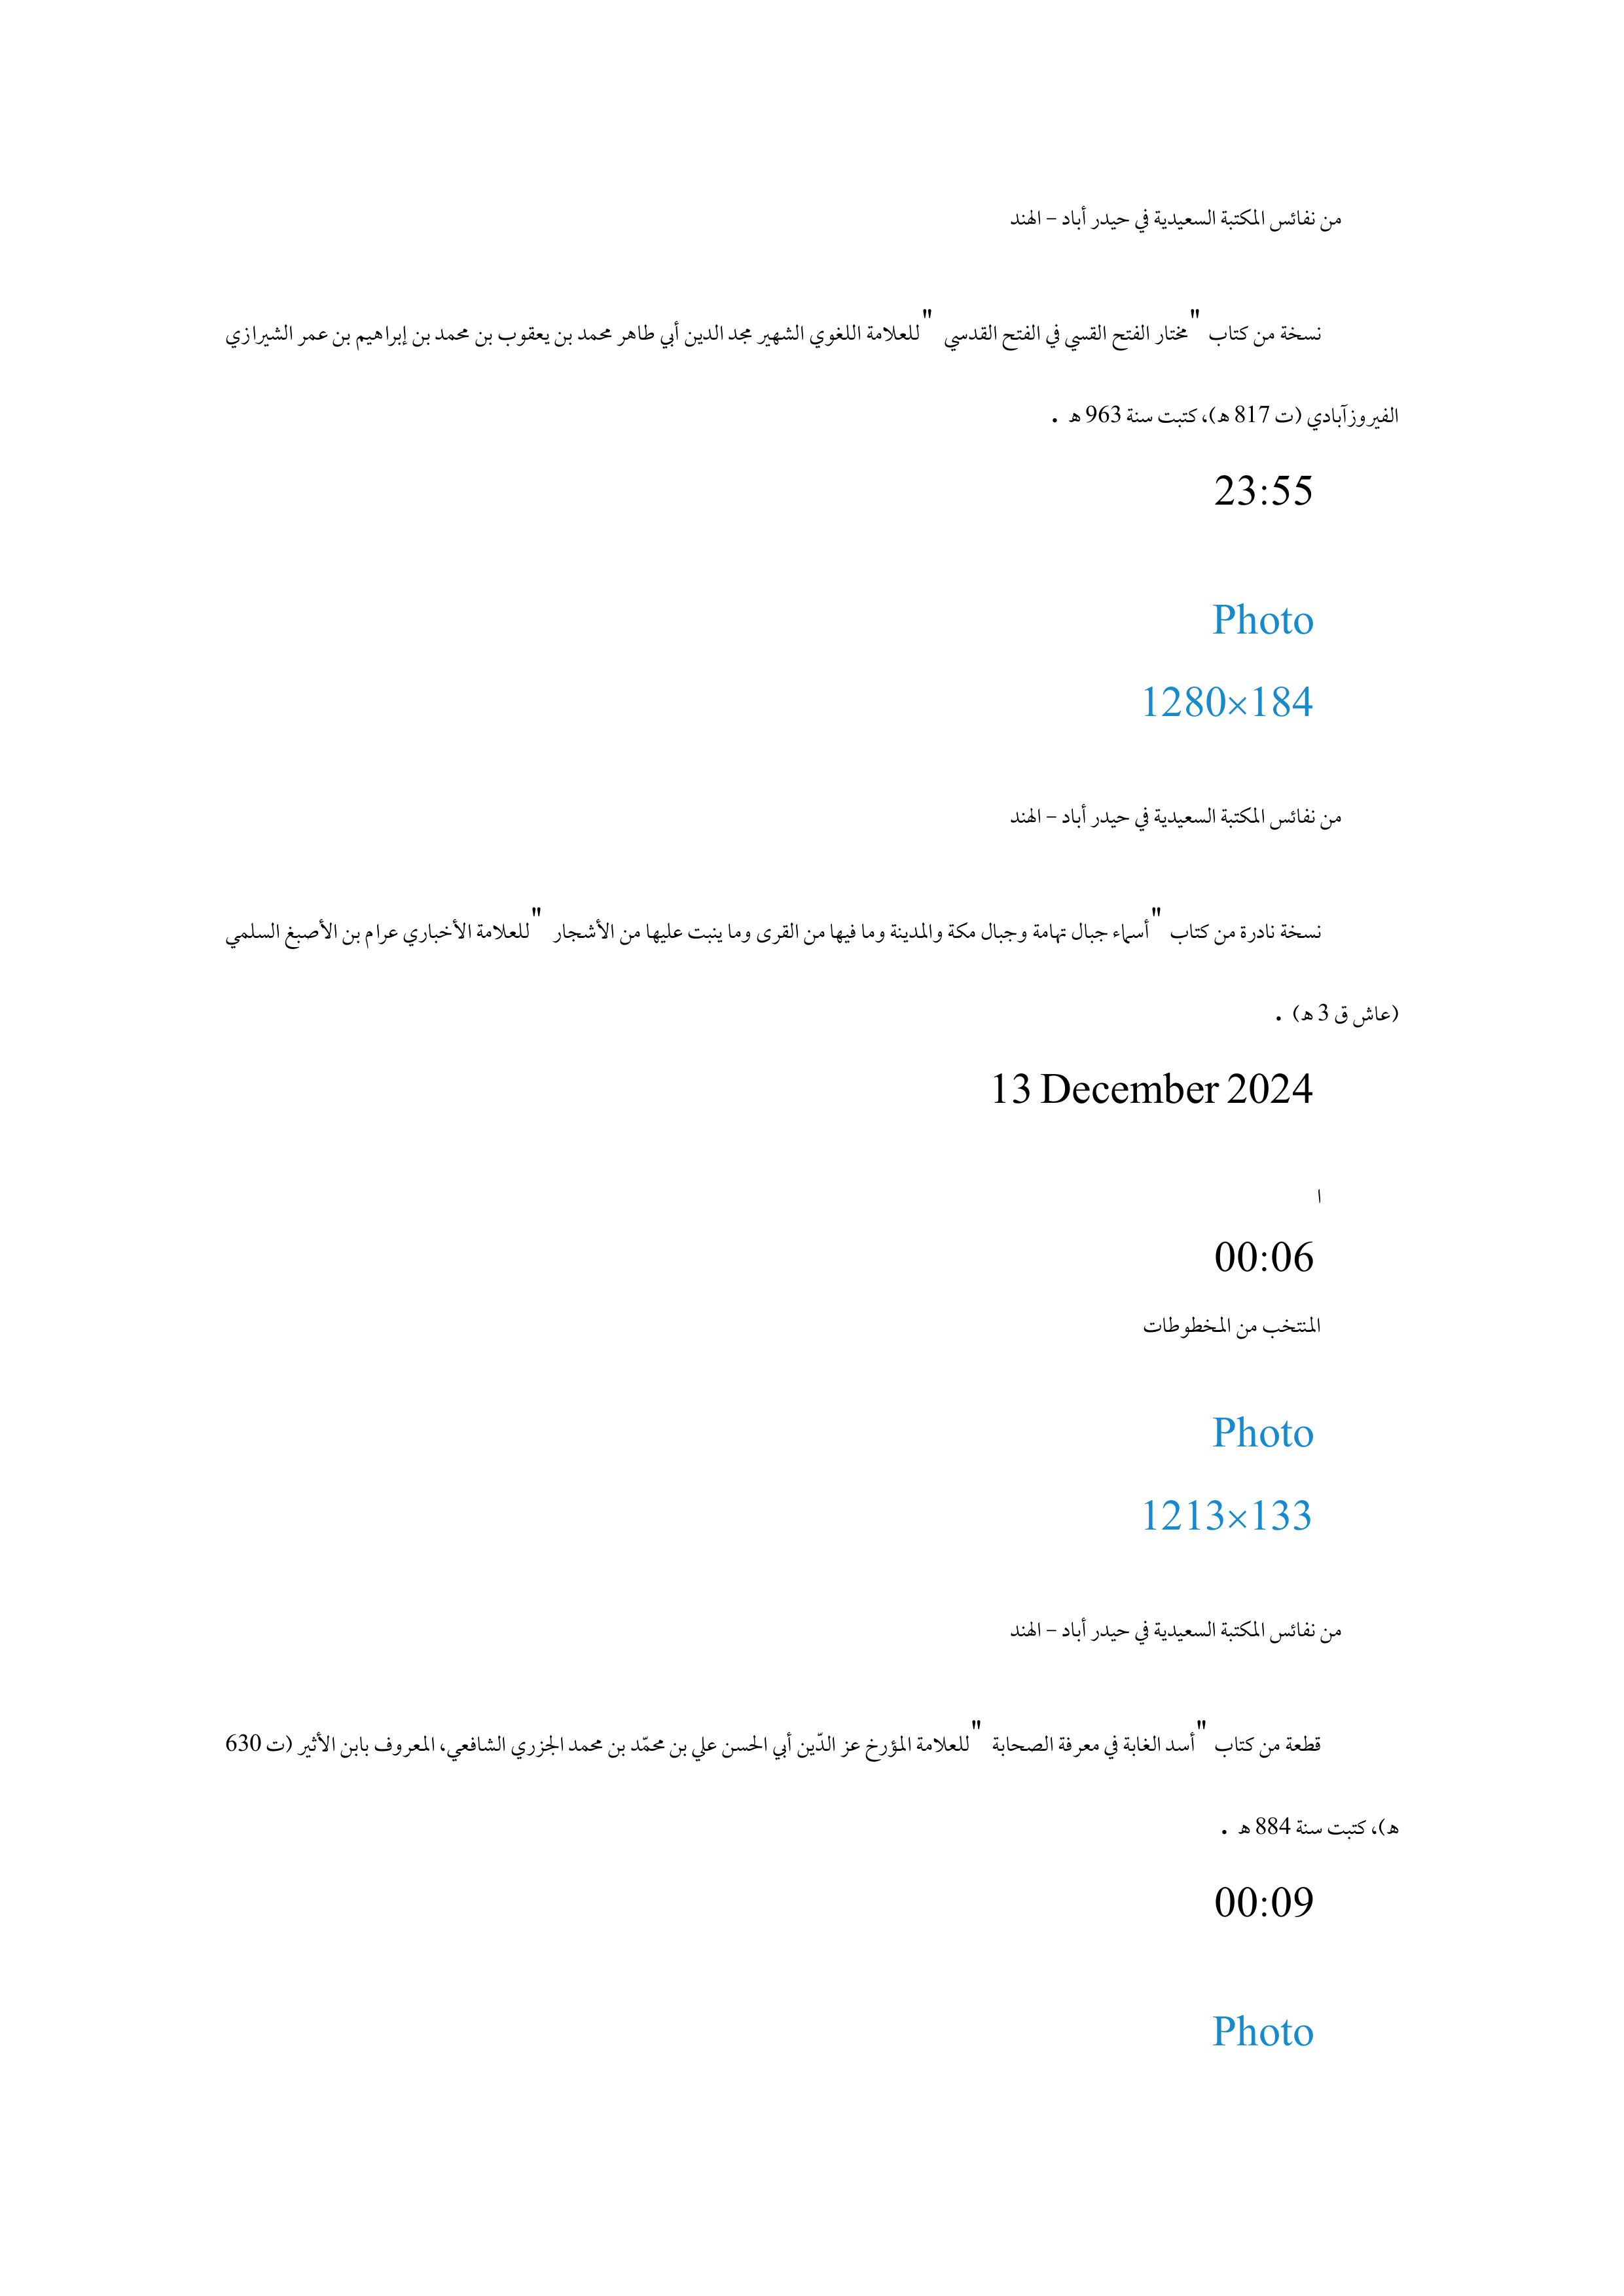 من نفائس المكتبة السعيدية في حيدر أباد – الهند
نسخة من كتاب "مختار الفتح القسي في الفتح القدسي "للعلامة اللغوي الشهير مجد الدين أبي طاهر محمد بن يعقوب بن محمد بن إبراهيم بن عمر الشيرازي
الفيروزآبادي (ت 817 ه)، كتبت سنة 963 ه .
23:55
Photo
1280×184
من نفائس المكتبة السعيدية في حيدر أباد – الهند
نسخة نادرة من كتاب "أسماء جبال تهامة وجبال مكة والمدينة وما فيها من القرى وما ينبت عليها من الأشجار "للعلامة الأخباري عرام بن الأصبغ السلمي
(عاش ق 3 ه) .
13 December 2024
ا
00:06
المنتخب من المخطوطات
Photo
1213×133
من نفائس المكتبة السعيدية في حيدر أباد – الهند
قطعة من كتاب "أسد الغابة في معرفة الصحابة "للعلامة المؤرخ عز الدّين أبي الحسن علي بن محمّد بن محمد الجزري الشافعي، المعروف بابن الأثير (ت 630
ه)، كتبت سنة 884 ه .
00:09
Photo